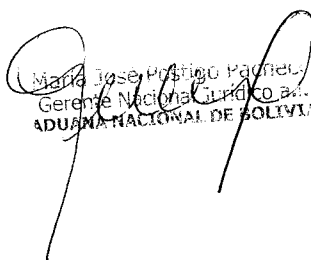 María José Postigo Pachec
Gerente Nacional Jurídico a.i.
ADUANA NACIONAL DE BOLIVIA